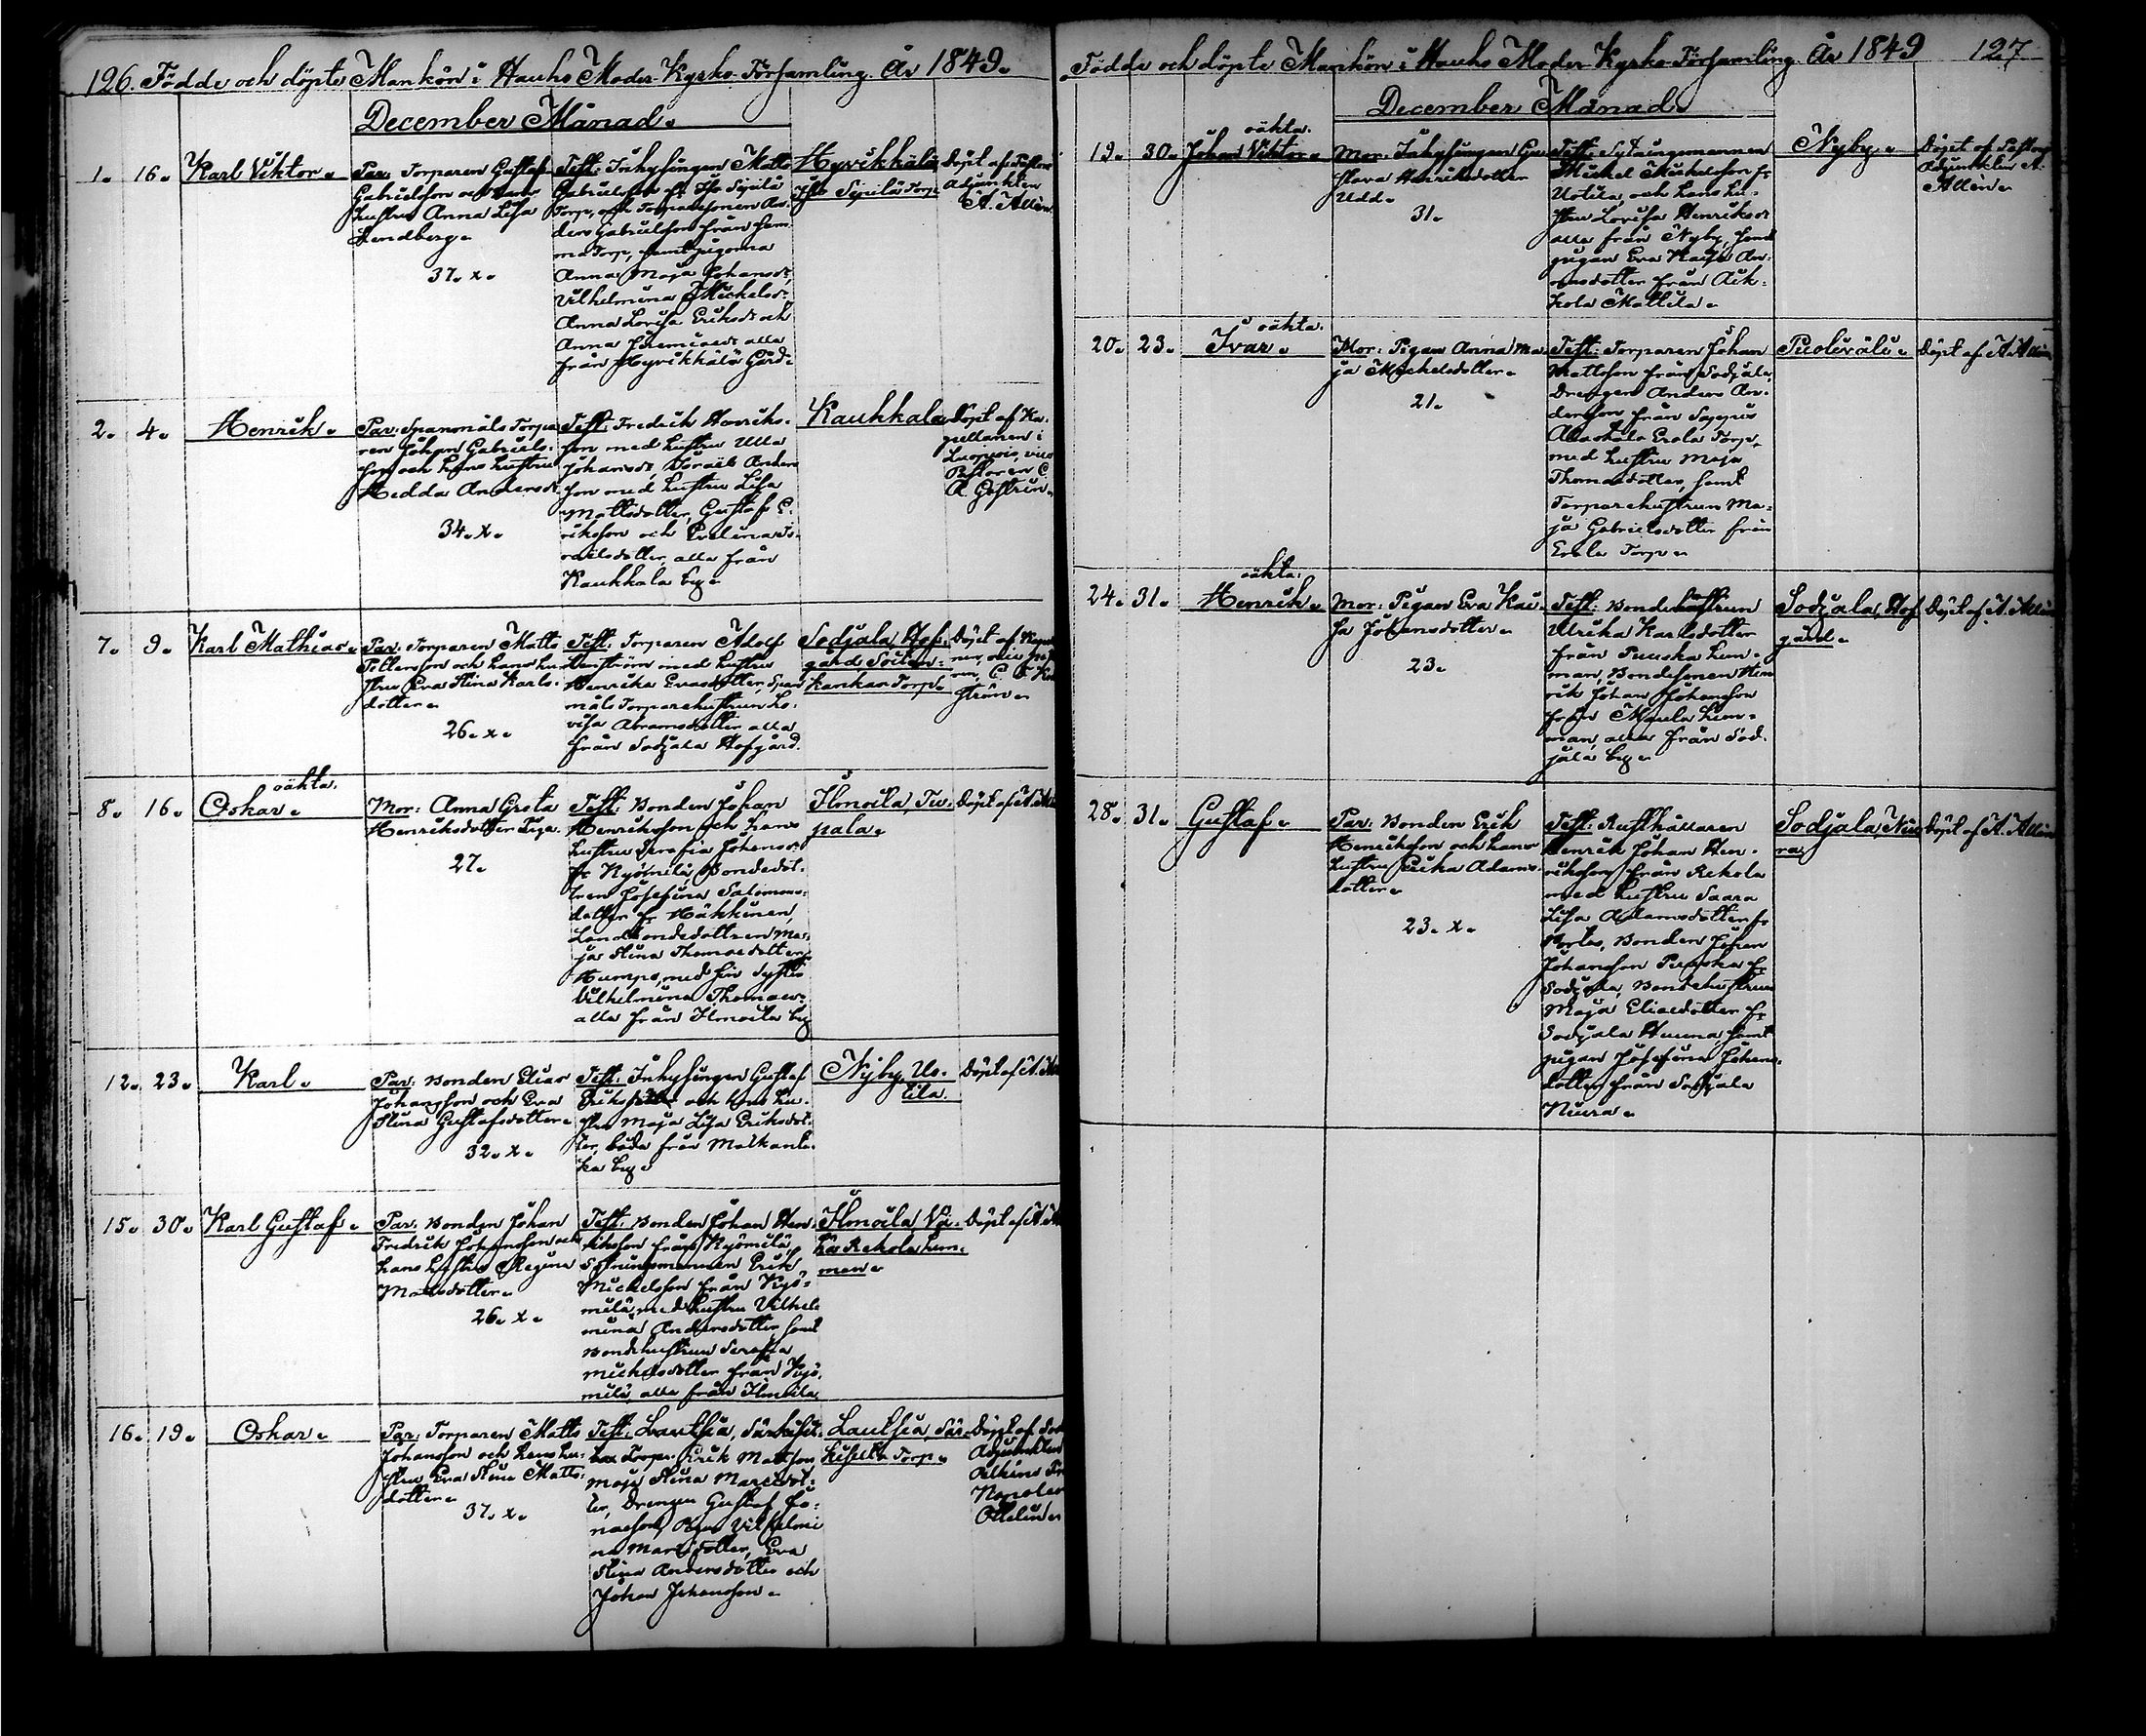 126. Födde och döpte Mankön i Hauho Moder Kyrko-Församling År 1849.
December Månad.
1. 16. Karl Viktor.
Par: Torparen Gustaf
Gabrielsson och hans
hustru Anna Lisa
37. x.
Test: Inhysingen Matts
Gabrielsson fr Iso Sipilä
Torp, och Torparesonen An-
ders Gabrielsson från sam-
ma Torp, samt pigorna
Anna Maja Johansdr,
Vilhelmina Mickelsdr,
Anna Lovisa Eriksdr och
Anna Jeremiaedr alla
från Hyvikkälä Gård.
Hyvikkälä
Iso Sipilä Torp.
Döpt af Pastors
Adjunkten
A. Allén
2. 4. Henrik.
Par: Spanmåls Torpa-
ren Johan Gabriels-
son och hans hustru
Hedda Andersdr
34. x.
Test: Fredrik Henriks-
son med hustru Ulla
Johansdr, Israël Anders-
son med hustru Lisa
Mattsdotter, Gustaf E-
riksson och Evelina Is-
raelsdotter, alla från
Kaukkala by.
Kaukkala
Döpt af Ka-
pellanen i
Luopiois, vice
Pastoren C.
A. Gestrin.
7. 9. Karl Mathias.
Par: Torparen Matts
Pettersson och hans hu-
stru Eva Stina Karls-
dotter.
26. x.
Test: Torparen Adolf
med hustru
Henrika Evasdotter, Span-
måls Torparehustrun Lo-
visa Abramsdotter alla
från Sodjala Hofgård.
Sodjala, Hof-
gård
Torp.
Döpt af
ström.
8. 16. Oskar. oäkta.
Mor: Anna Greta
Henriksdotter Piga.
27.
Test: Bonden Johan
Henriksson och hans
hustru Serafia Johansdr
fr Kyömilä, Bondedot-
tren Josefina Salomons-
dotter fr Häkkinen,
Landbondedottren Ma-
ja Stina Thomaedotter
Humpo, med sin syster
Vilhelmina Thomaedr
alla från Ilmoila by
Ilmoila, Tu-
pala.
Döpt af A. Al
12. 23. Karl.
Par: Bonden Elias
Johansson och Eva
Stina Gustafsdotter.
32. x.
Test: Inhysingen Gustaf
och hans hu-
stru Maja Lisa Eriksdot-
ter, båda från Matkante-
ka by.
Nyby, Uo-
tila.
Döpt af A. Al
15. 30. Karl Gustaf.
Par: Bonden Johan
Fredrik Johansson och
hans hustru Regina
Mattsdotter.
26. x.
Test: Bonden Johan Hen-
riksson från Kyömilä,
Sytningsmannen Erik
Mickelsson från Kyö-
milä, med hustru Vilhel-
mina Andersdotter, samt
Bondehustrun Serafia
Mickelsdotter från Kyö-
milä, alla från Ilmoila.
Ilmoila, Vä-
hä Rekola Lem-
men.
Döpt af A. Al
16. 19. Oskar.
Par: Torparen Matts
Johansson och hans hu-
stru Eva Stina Matts-
dotter.
37. x.
Test: Lautsia,
Torp. Erik Mattsson
Maja Stina
ter, Drengen Gustaf Jo-
nasson, Vilhelmi-
na dotter, Eva
Stina Andersdotter och
Johan Johansson.
Lautsia, Sär-
Torp.
Döpt af
Adjunkten
Ottelin.
Födde och döpte Mankön i Hauho Moder Kyrko-Församling År 1849 127.
December Månad.
19. 30. Johan Viktor. oäkta.
Mor: Inhysingen Gu-
stava Henriksdotter
Udd.
31.
Test: Sytningsmannen
Mickel Mickelsson fr
Uotila, och hans hu-
stru Lovisa Henriksdr
alla från Nyby, samt
pigan Eva Kaisa
från
Mattila.
Nyby.
Döpt af Pastors
Adjunkten A.
Allén.
20. 23. Ivar. oäkta.
Mor: Pigan Anna Ma-
ja Mickelsdotter.
21.
Test: Torparen Johan
Mattsson från Sodjala,
Drengen Anders An-
dersson från
Torp,
med hustru Maja
Thomaedotter, samt
Torparehustrun Ma-
ja Gabrielsdotter från
Torp.
Puolivali.
Döpt af A. Allén
24. 31. Henrik. oäkta.
Mor: Pigan Eva Kai-
sa Johansdotter.
23.
Test: Bondehustrun
Ulrika Karlsdotter
från
Bondesonen Hen-
rik Johan Johansson
från
alla från Sod-
jala by.
Sodjala, Hof
gård.
Döpt af A. Allén
28. 31. Gustaf.
Par: Bonden Erik
Henriksson och hans
hustru Erika Adams-
dotter.
23. x.
Test: Rusthållaren
Henrik Johan Hen-
riksson från Rekola
med hustru Saara
Lisa Adamsdotter fr
Bonden Johan
Johansson fr
Sodjala, Bondehustrun
Maja Eliaedotter fr
Sodjala samt
pigan Josefina Johans-
dotter från Sodjala
Niura.
Sodjala, Niu
ra.
Döpt af A. Allén